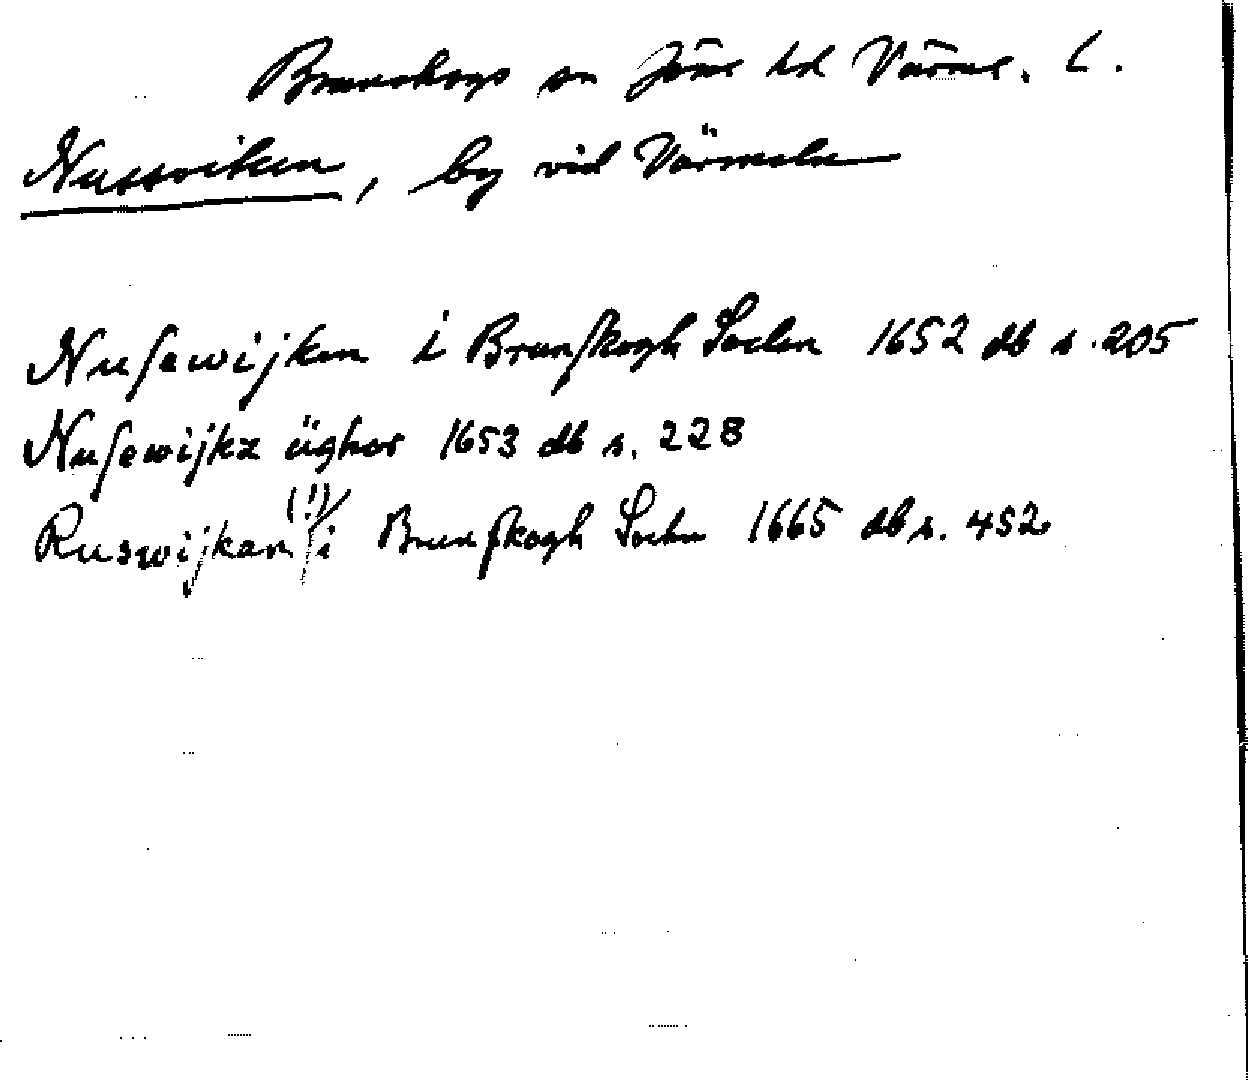 Brunskogs sn Jöse hd Värml. L.
Nussviken, by vid Värmeln
Nuſewijken i Brunſkogh Sochn 1652 db s. 205
Nuſewijkz ughor 1653 db s. 228
Ruswijkan (!) i Brunſkogh Sochn 1665 db s. 452